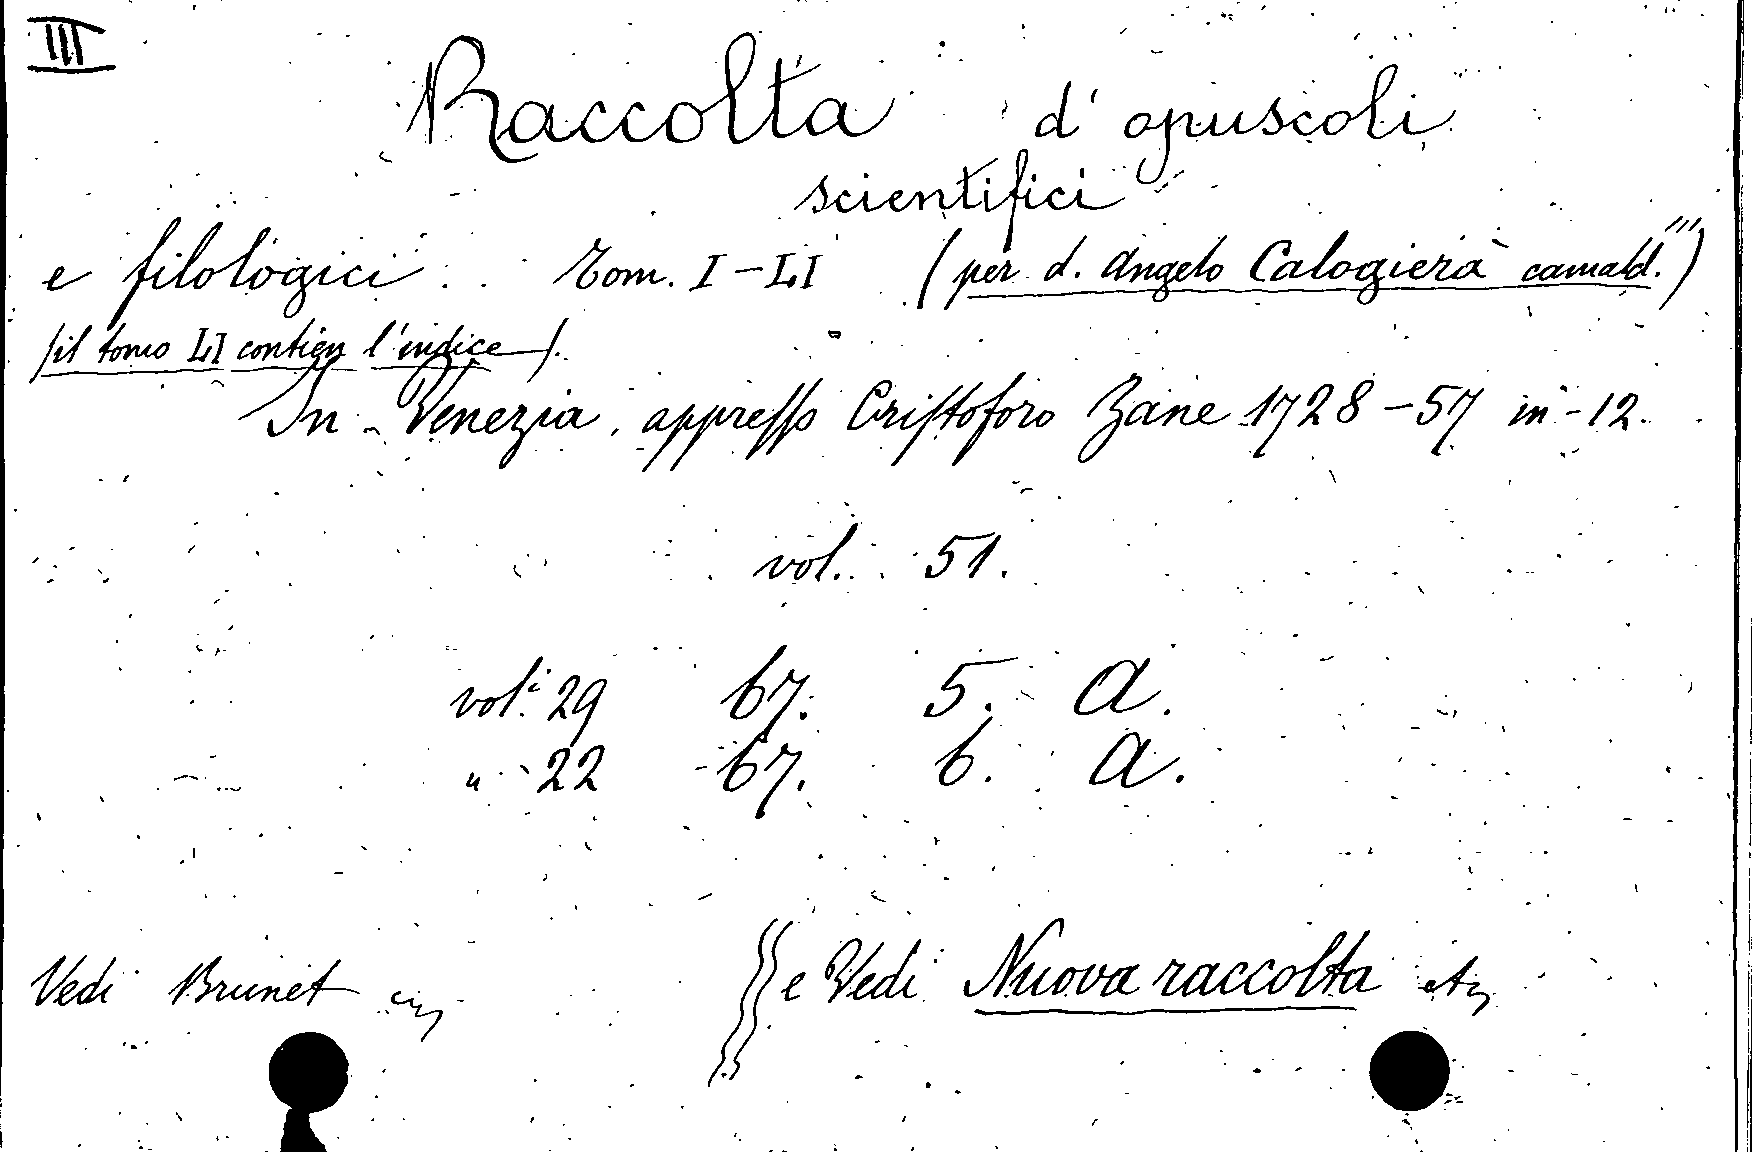 III
Raccolta d'opuscoli
scientifici
e filologici. Tom. I-LI (per d. Angelo Calogierà camald.''')
/il tomo LI contien l'indice/.
In Venezia, appresso Cristoforo Zane 1728-57 in-12.
vol. 51.
vol.i 29 67. 5. A.
" 22 67. 6. A.
Vedi Brunet
e Vedi Nuova raccolta